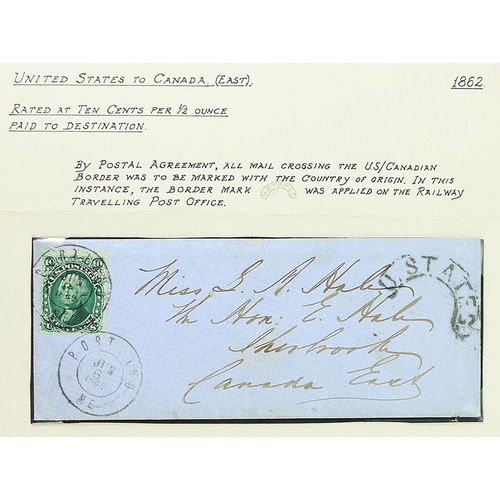 UNITED STATES TO CANADA. (EAST).
1862.
RATED AT TEN CENTS PER ½ OUNCE
PAID TO DESTINATION.
BY POSTAL AGREEMENT, ALL MAIL CROSSING THE US/CANADIAN
BORDER WAS TO BE MARKED WITH THE COUNTRY OF ORIGIN. IN THIS
INSTANCE, THE BORDER MARK WAS APPLIED ON THE RAILWAY
TRAVELLING POST OFFICE.
U. STATES
Miss G. A. Hale
The Hon: E. Hale
Sherbrooke
Canada East
PORTLAND
ME